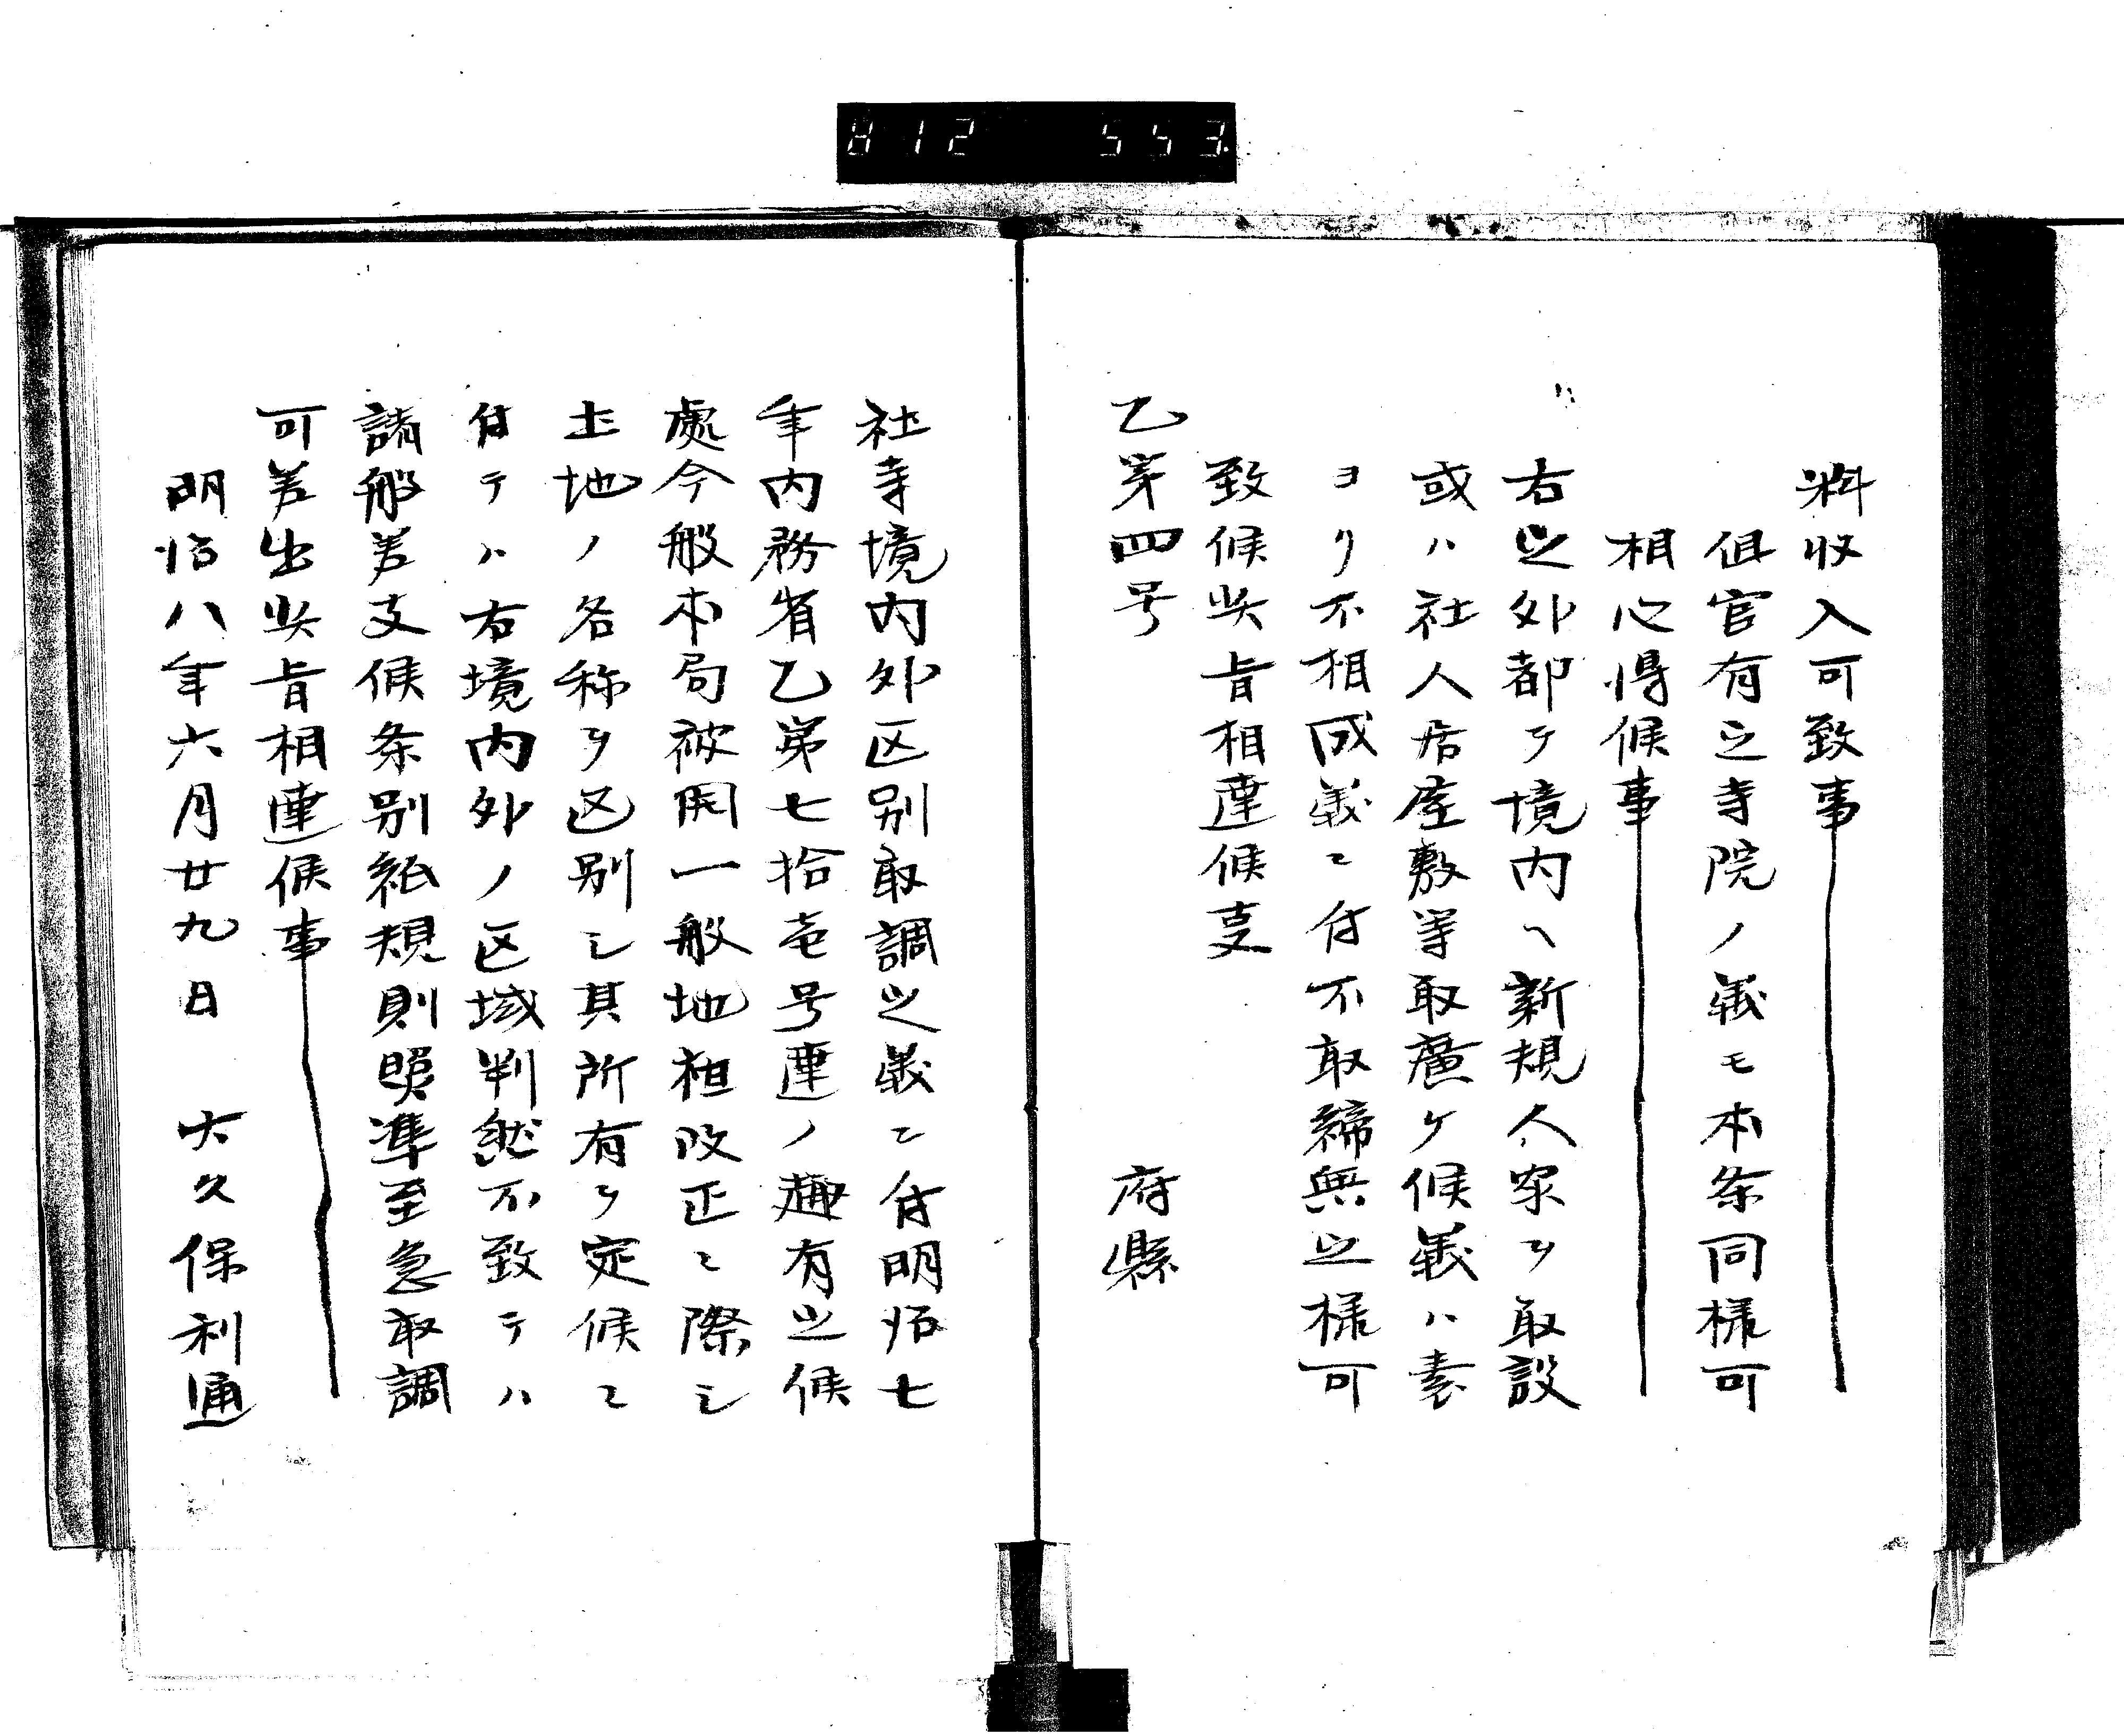 812 553
料收入可致事
但官有之寺院ノ義モ本条同様可
相心得候事
右之外都テ境内ヘ新規人家ヲ取設
或ハ社人居屋敷等取廣ケ候義ハ素
ヨリ不相成義ニ付不取締無之様可
致候此旨相達候叓
乙第四号 府縣
社寺境内外区別取調之義ニ付明治七
年内務省乙第七拾壱号達ノ趣有之候
處今般本局被開一般地租改正ニ際シ
土地ノ各称ヲ区別シ其所有ヲ定候ニ
付テハ右境内外ノ区域判然不致テハ
諸般差支候条別紙規則照準至急取調
可差出此旨相達候事
明治八年六月廿九日 大久保利通